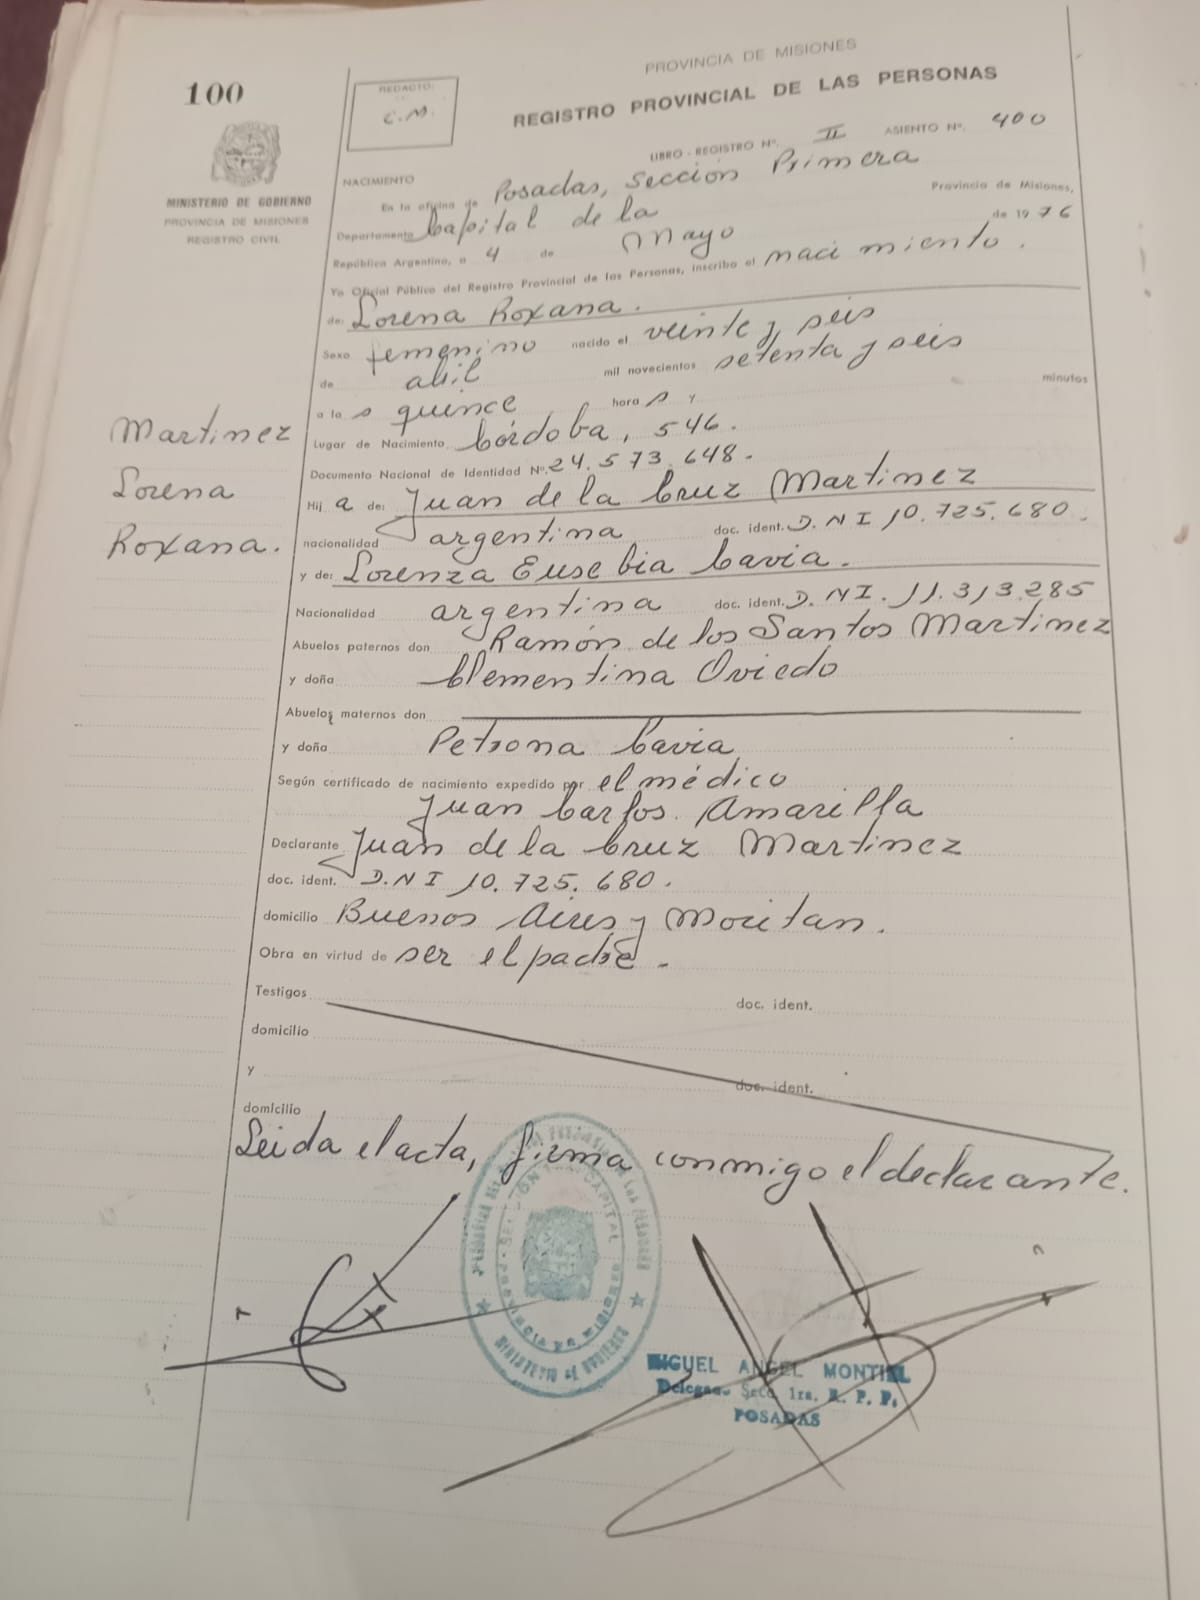 PROVINCIA DE MISIONES
100
REDACTO:
C.M.
REGISTRO PROVINCIAL DE LAS PERSONAS
LIBRO - REGISTRO Nº. II ASIENTO Nº. 400
MINISTERIO DE GOBIERNO
PROVINCIA DE MISIONES
REGISTRO CIVIL
NACIMIENTO
En la oficina de Posadas, Sección Primera
Departamento Capital de la Provincia de Misiones,
República Argentina, a 4 de Mayo de 1976
Yo Oficial Público del Registro Provincial de las Personas, inscribo el nacimiento.
de: Lorena Roxana.
Sexo femenino nacido el veinte y seis
de abril mil novecientos setenta y seis
a las quince horas y minutos
Martinez
Lorena
Roxana.
Lugar de Nacimiento Córdoba, 546.
Documento Nacional de Identidad Nº. 24.573.648.-
Hija de: Juan de la Cruz Martinez
nacionalidad argentina doc. ident. D.N I 10.725.680.
y de: Lorenza Eusebia Cavia.
Nacionalidad argentina doc. ident. D.NI. 11.313.285
Abuelos paternos don Ramón de los Santos Martinez
y doña Clementina Oviedo
Abuelos maternos don
y doña Petrona Cavia
Según certificado de nacimiento expedido por el médico
Juan Carlos Amarilla
Declarante Juan de la Cruz Martinez
doc. ident. D.N I 10.725.680.
domicilio Buenos Aires y Moritan.
Obra en virtud de ser el padre.
Testigos doc. ident.
domicilio
y doc. ident.
domicilio
Leida el acta, firma conmigo el declarante.
MIGUEL ANGEL MONTIEL
Delegado Secc. 1ra. R. P. P.
POSADAS